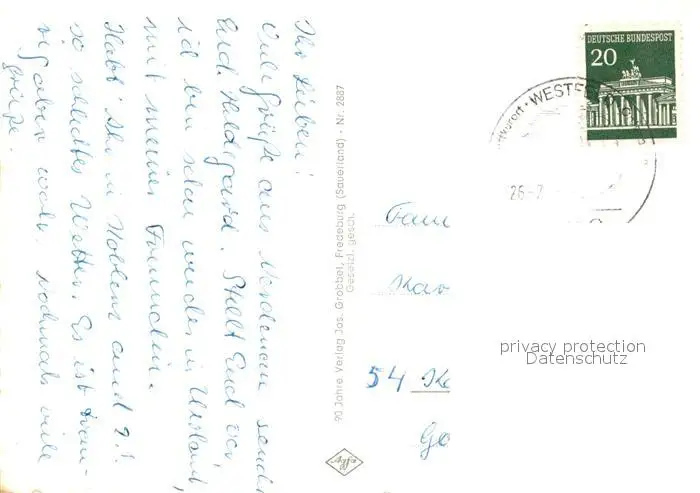 Ihr Lieben!
Viele Grüße aus Nordenau sendet
Euch Hildegard. Stellt Euch vor,
ich bin schon wieder in Urlaub,
mit meiner Freundin.
Habt Ihr in Koblenz auch
so schlechtes Wetter. Es ist
wohl. nochmals viele
Grüße.
90 Jahre Verlag Jos. Grobbel, Fredeburg (Sauerland) · Nr. 2887
Gesetzl. gesch.
DEUTSCHE BUNDESPOST
20
WESTF
26-7
Fam
Kar
54 Ko
Go
Agfa
privacy protection
Datenschutz